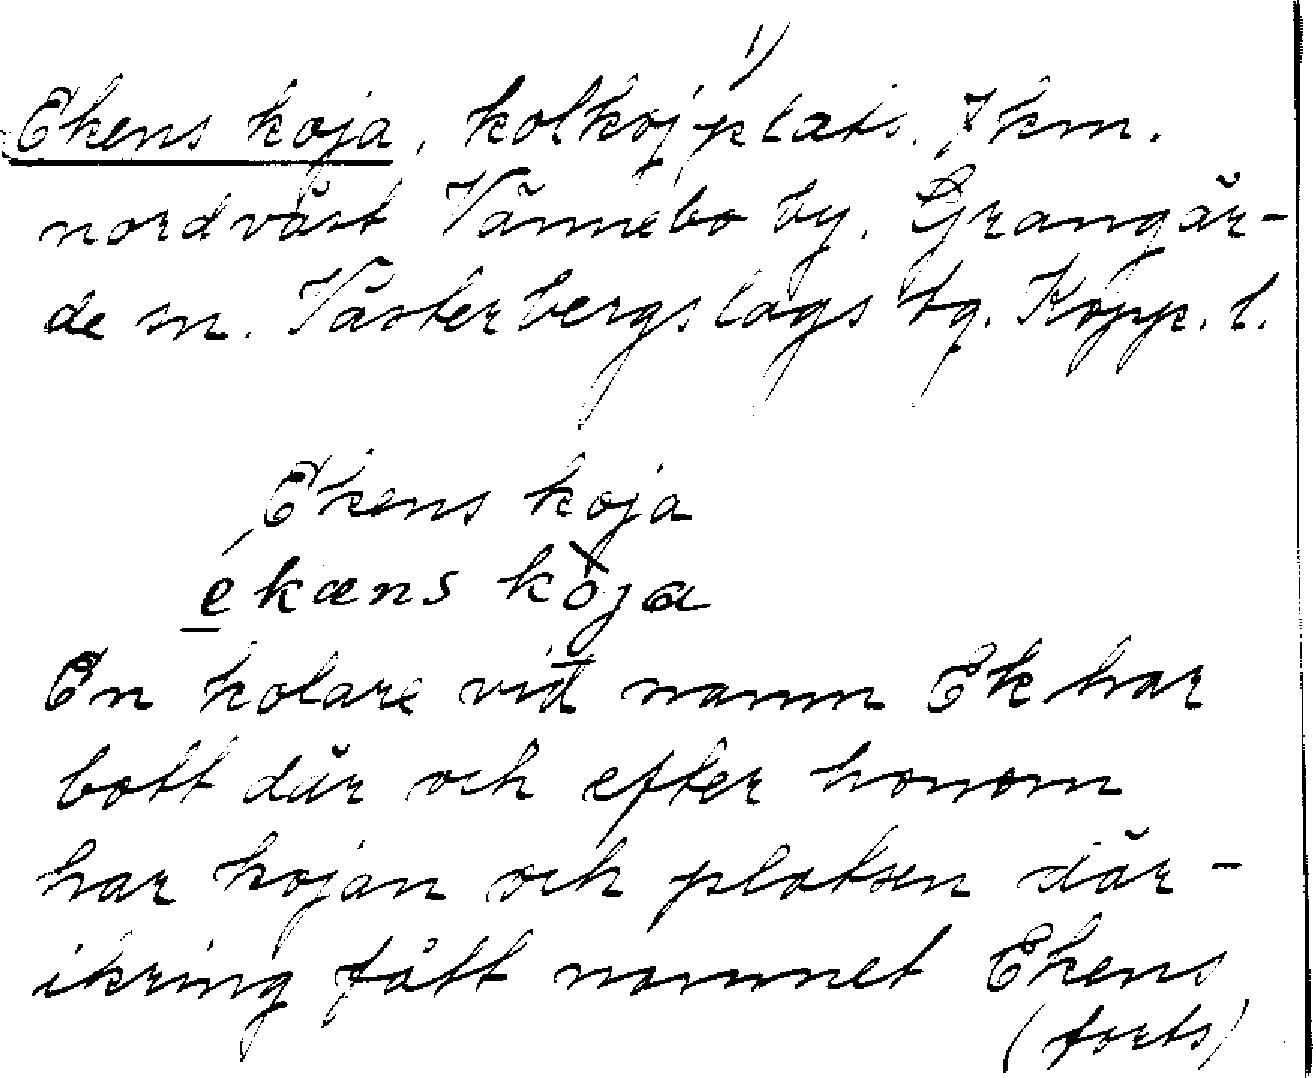 1)
Ekens koja, kolkojplats. 7 km.
nordväst Vännebo by. Grangär-
de sn. Västerbergslags tg. Kopp. l.
Ekens koja
ekæns kòja
En kolare vid namn Ek har
bott där och efter honom
har kojan och platsen där-
ikring fått namnet Ekens
(forts)